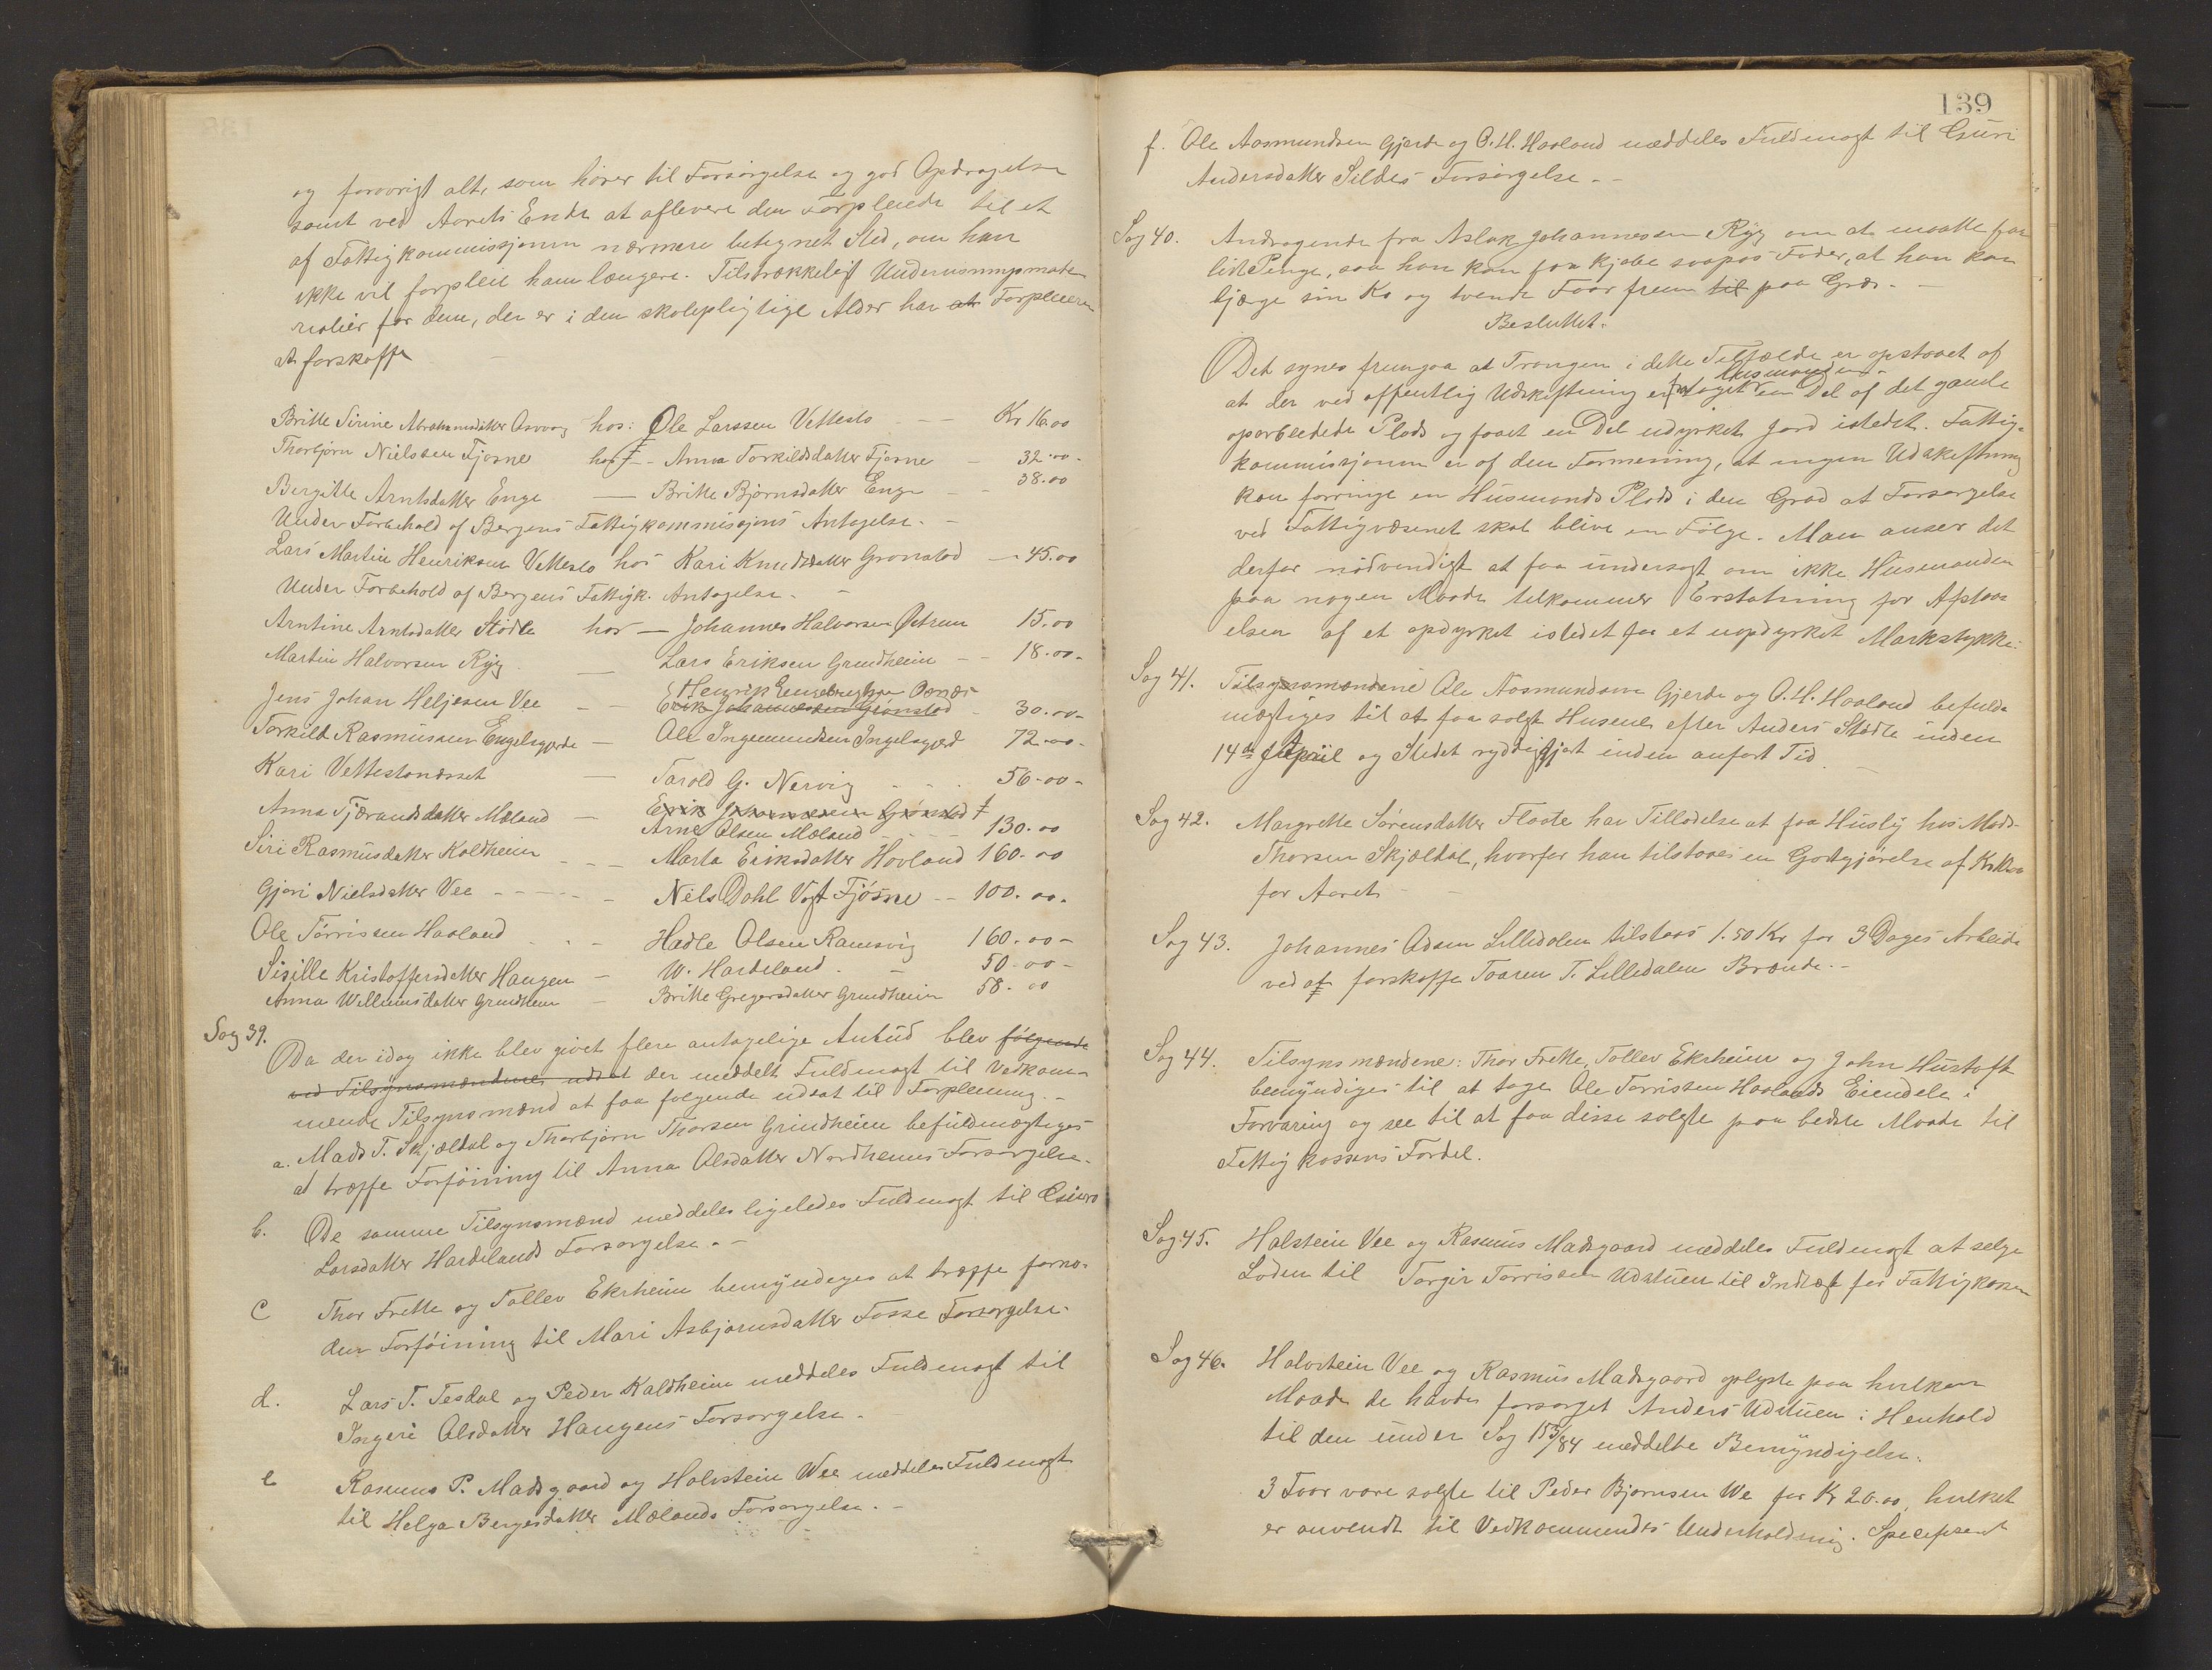 og forøvrigt alt, som hører til Forsørgelse og god Opdragelse
samt ved Aarets Ende at aflevere den Forpleiede til et
af Fattigkommissjonen nærmere betegnet Sted, om han
ikke vil forpleie ham længere. Tilstrækkeligt Underviisningsmate
rialier for dem, der er i den skolepligtige Alder har at Forpleieren
at forskaffe
Britte Serine Abrahamsdatter Osvaag hos: Ole Larssen Vettestø — Kr 16.00
Thorbjørn Nielssen Fjøsne hos - Anna Torkildsdatter Fjøsne - 32.00-
Bergitte Arntsdatter Enge — Britte Bjørnsdatter Enge - - 38.00
Under Forbehold af Bergens Fattigkommissjons Antagelse. -
Lars Martin Henriksen Vettestø hos Kari Knudsdatter Grønstød — 45.00
Under Forbehold af Bergens Fattigk. Antagelse. -
Arntine Arntsdatter Stødle hos — Johannes Halvorsen Østrem 15.00
Martin Halvorsen Ryg — Lars Eriksen Grindheim - - 18.00-
Henrik Engebregtsen Osnes
Jens Johan Heljesen Vee - - Erik Johannessen Grønstød - 30.00-
Torkild Rasmussen Engelsgjerde — Ole Ingemundsen Ingelsgjerd 72.00-
Kari Vettestonæsset — Tarold G. Nervig - - 56.00-
Anna Tjærandsdatter Mæland — Erik Johannessen Grønstød
Arne Olsen Mæland - - - - 130.00
Siri Rasmusdatter Kaldheim - - - Marta Eriksdatter Hovland 160.00
Gjøri Nielsdatter Vee - - - - - Nils Dahl Vogt Fjøsne - - 100.00.
Ole Tørrissen Haaland - - - Hadle Olsen Ramsvig 160.00-
Sisille Kristoffersdatter Haugen — W. Hardeland. - 50.00-
Anna Wellumsdatter Grindheim — Britte Gregersdatter Grindheim 58.00
Sag 39.
Da der idag ikke blev givet flere antagelige Anbud blev følgende
ved Tilsynsmændene udsat der meddelt Fuldmagt til Vedkom-
mende Tilsynsmænd at faa følgende udsat til Forpleining. -
a. Mads T. Skjældal og Thorbjørn Thorsen Grindheim befuldmægtiges
at træffe Forføining til Anna Olsdatter Nordheims Forsørgelse.
b. De samme Tilsynsmænd meddeles ligeledes Fuldmagt til Guro
Larsdatter Hardelands Forsørgelse. -
c Thor Frette og Tollev Ekrheim bemyndeges at træffe forno-
den Forføining til Mari Asbjørnsdatter Fosse Forsørgelse.
d. Lars T. Tesdal og Peder Kaldheim meddeles Fuldmagt til
Ingeri Olsdatter Haugens Forsørgelse.
e Rasmus P. Madsgaard og Halvstein Wee meddeles Fuldmagt
til Helga Bergesdatter Mælands Forsørgelse. -
139
f. Ole Aasmundsen Gjerde og O. H. Haaland meddeles Fuldmagt til Guri
Andersdatter Sildes Forsørgelse. -
Sag 40. Andragende fra Aslak Johannessen Ryg om at maatte faa
lidt Penge, saa han kan faa kjøbe saapas Foder, at han kan
bjærge sin Ko og tvende Faar frem til paa Græs. -
Besluttet:
Det synes fremgaa at Trangen i dette Tilfælde er opstaaet af
Husmanden
at der ved offentlig Udskiftning er frataget en Del af det gamle
oparbeidede Plads og faaet en Del udyrket Jord istedet. Fattig-
kommissjonen er af den Formening, at ingen Udskiftning
kan forringe en Husmands Plads i den Grad at Forsørgelse
ved Fattigvæsenet skal blive en Følge. Man anser det
derfor nødvendigt at faa undersøgt om ikke Husmanden
paa nogen Maade tilkommer Erstatning for Afstaa-
elsen af et opdyrket istedet for et uopdyrket Markstykke.
Sag 41. Tilsynsmændene Ole Aasmundsen Gjerde og O. H. Haaland befuld-
mægtiges til at faa solgt Husene efter Anders Stødle inden
14de April og Stedet ryddiggjort inden anført Tid. —
Sag 42. Margrette Sørensdatter Flaate har Tilladelse at faa Husly hos Mads
Thorsen Skjældal, hvorfor han tilstaaes en Godtgjørelse af
for Aaret - -
Sag 43. Johannes Odsen Lilledalen tilstaaes 1.50 Kr for 3 Dages Arbeide
ved at forskaffe Toaren T. Lilledalen Brænde. -
Sag 44. Tilsynsmændene: Thor Frette, Tollev Ekrheim og John Hustoft
bemyndiges til at tage Ole Tørrissen Haalands Eiendele i
Forvaring og see til at faa disse solgte paa bedste Maade til
Fattigkassens Fordel.
Sag 45. Halstein Vee og Rasmus Madsgaard meddeles Fuldmagt at selge
Løden til Torger Torrissen Udstuen til Indtægt for Fattigkassen
Sag 46. Halvstein Vee og Rasmus Madsgaard oplyste paa hvilken
Maade de havde forsørget Anders Udstuen i Henhold
til den under Sag 153/84 meddelte Bemyndigelse.
3 Faar vare solgte til Peder Bjørnsen We for Kr 20.00, hvilket
er anvendt til Vedkommendes Underholdning. Specificeret